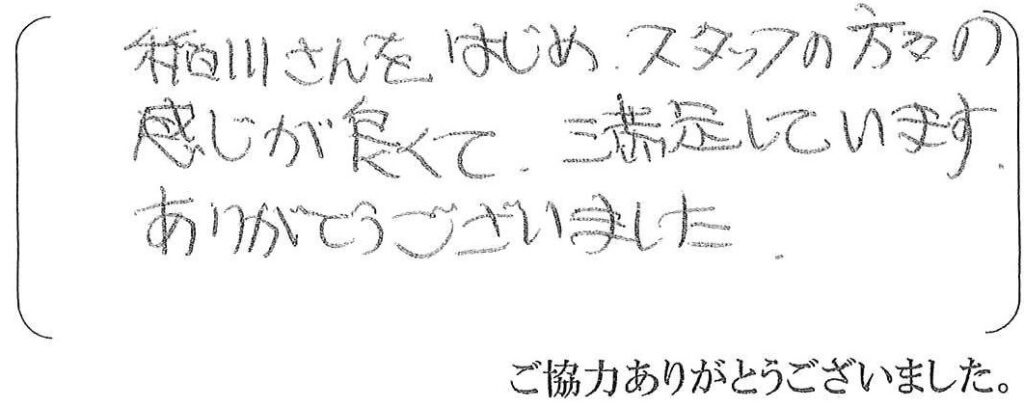 稲川さんをはじめ、スタッフの方々の
感じが良くて、満足しています。
ありがとうございました。
ご協力ありがとうございました。